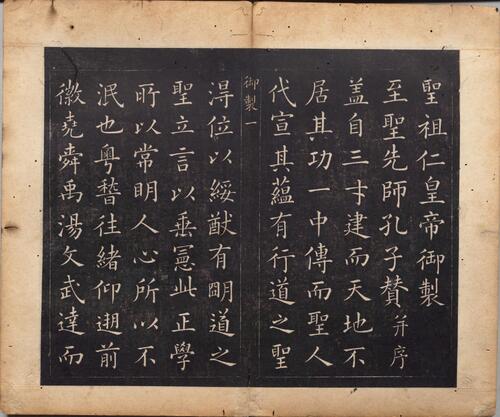 聖祖仁皇帝御製
至聖先師孔子贊并序
盖自三才建而天地不
居其功一中傳而聖人
代宣其蘊有行道之聖
御製一
淂位以綏猷有明道之
聖立言以垂憲此正學
所以常明人心所以不
泯也粤稽往緒仰遡前
徽堯舜禹湯文武達而